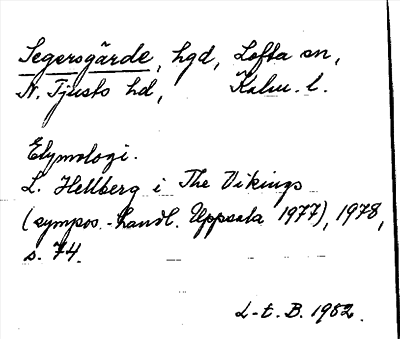 Segersgärde, hgd, Lofta sn,
N. Tjusts hd, Kalm. l.
Etymologi.
L. Hellberg i The Vikings
(sympos.-handl. Uppsala 1977), 1978,
s. 74.
L-t. B. 1982.